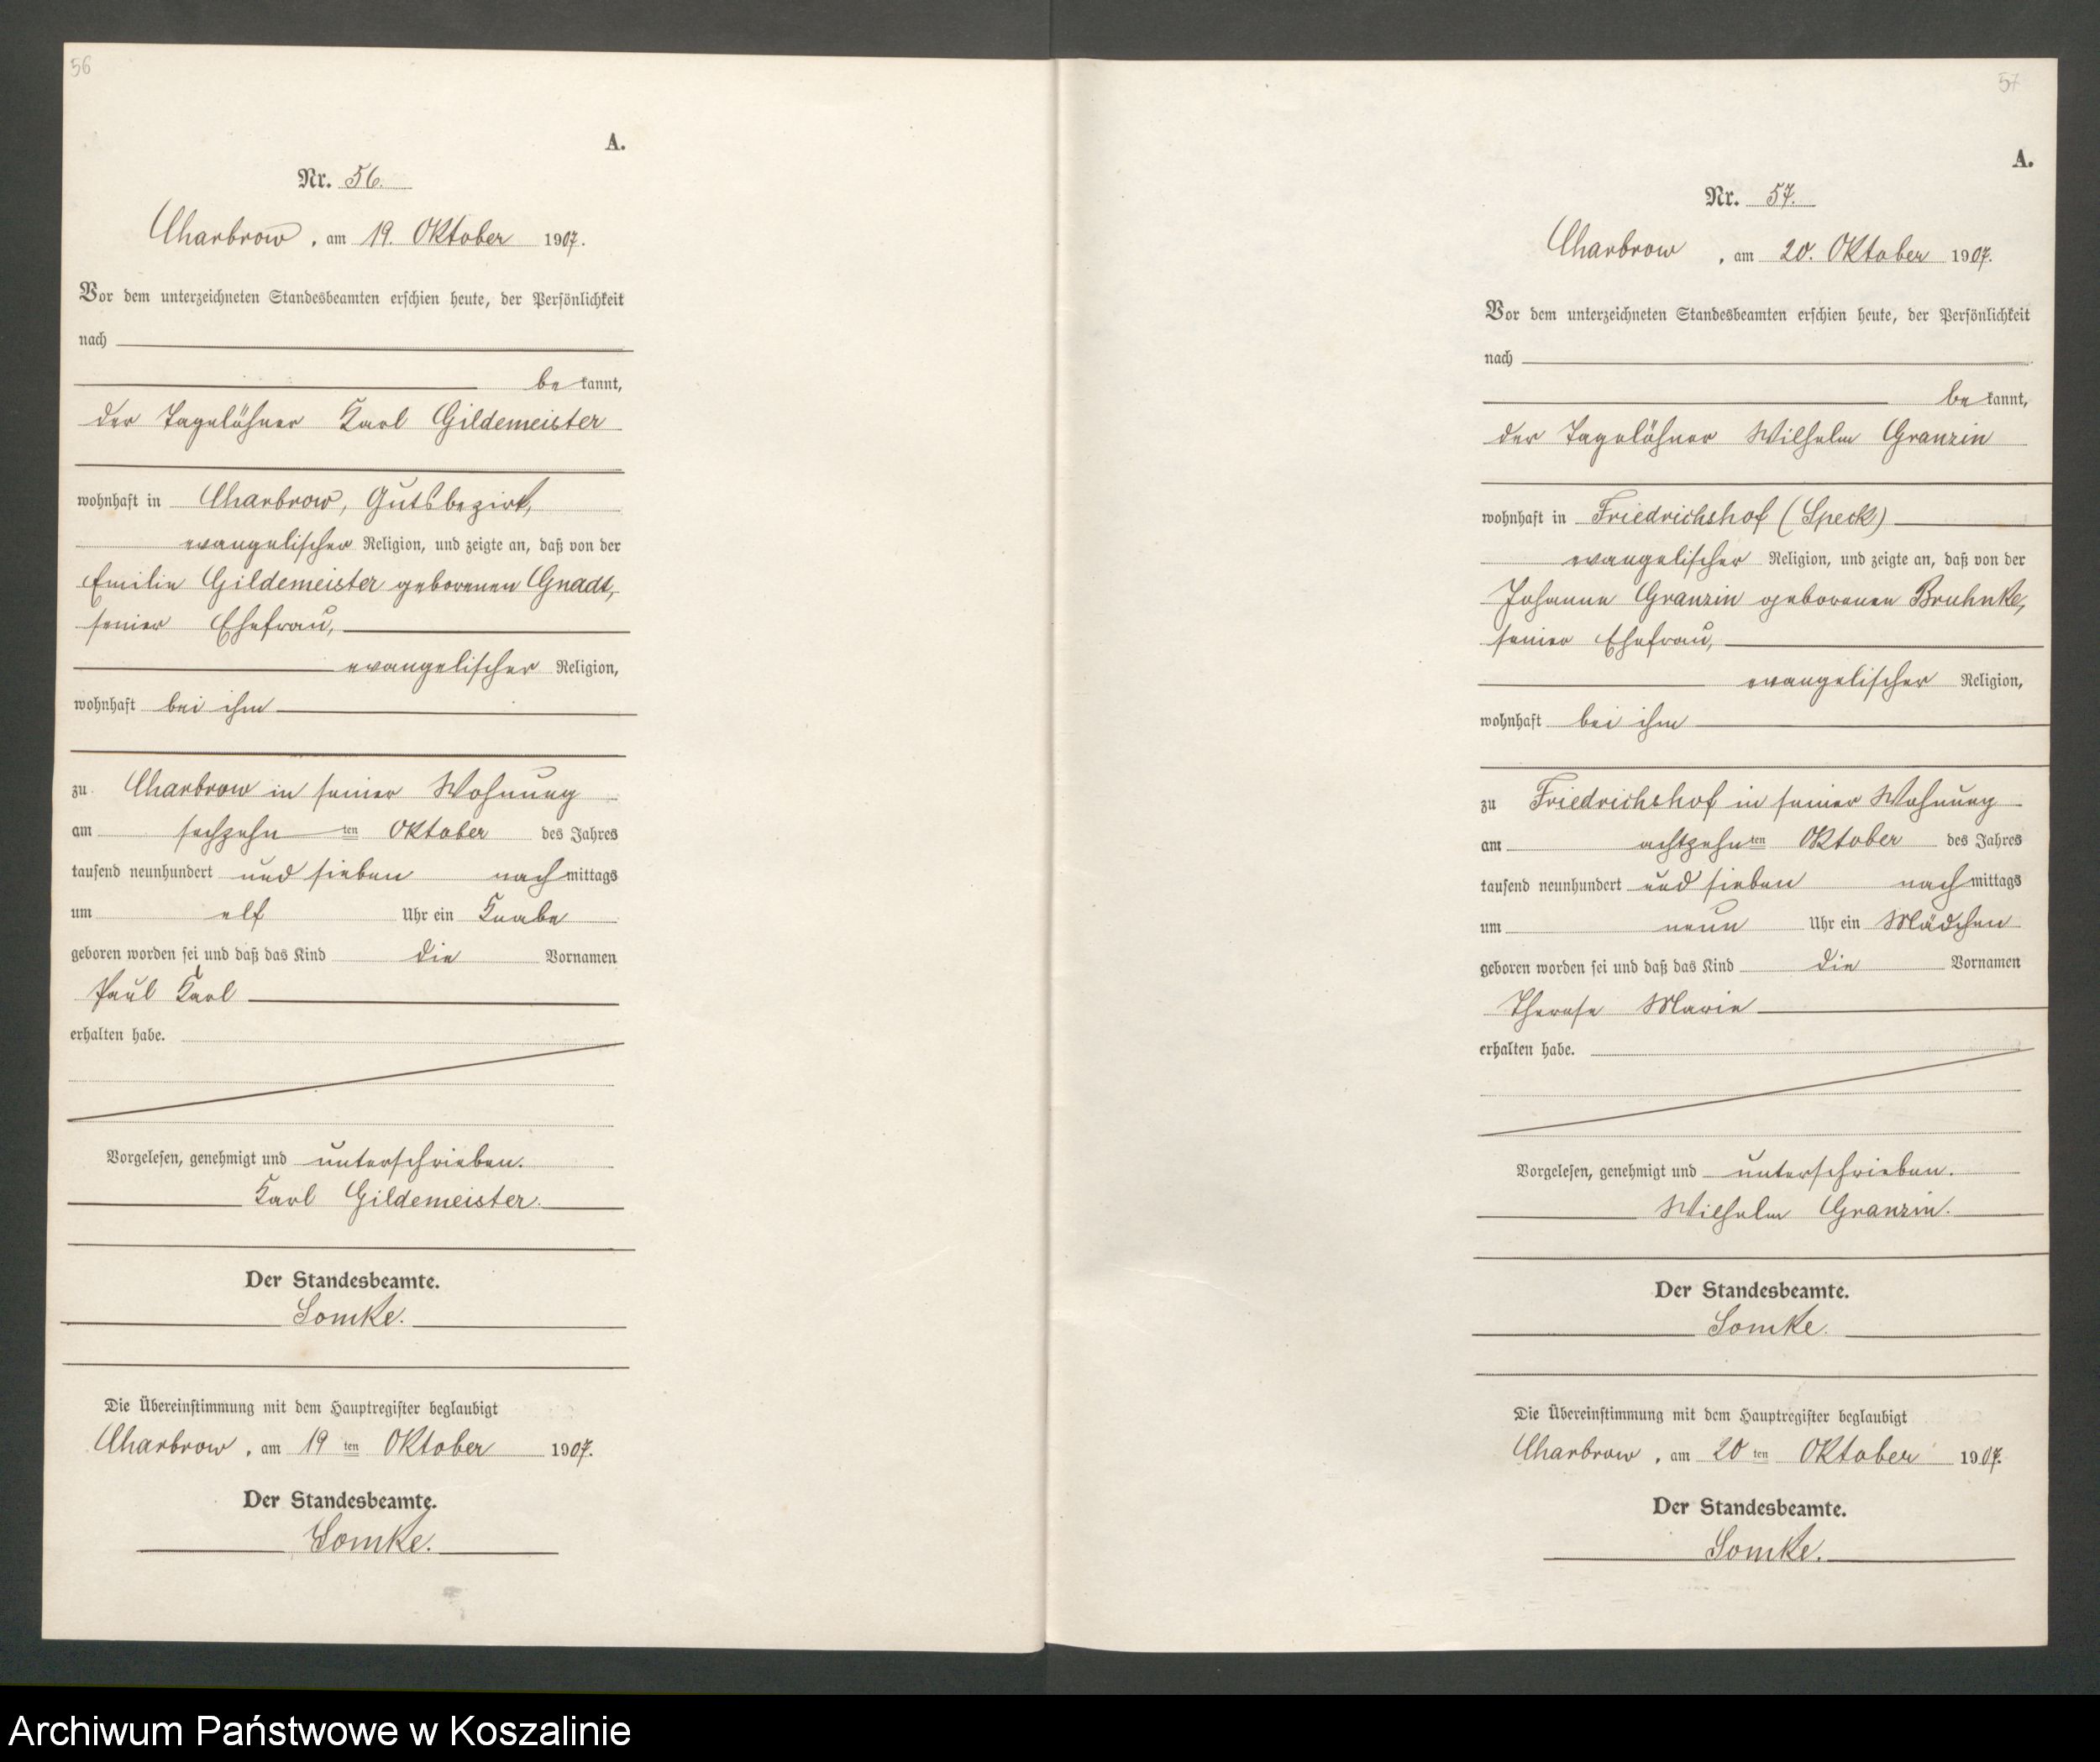 56
A.
Nr. 56.
Charbrow, am 19. Oktober 1907.
Vor dem unterzeichneten Standesbeamten erschien heute, der Persönlichkeit
nach
be kannt,
der Tagelöhner Karl Gildemeister
wohnhaft in Charbrow, Gutsbezirk,
evangelischer Religion, und zeigte an, daß von der
Emilie Gildemeister geborenen Gnadt,
seiner Ehefrau,
evangelischer Religion,
wohnhaft bei ihm
zu Charbrow in seiner Wohnung
am sechzehn ten Oktober des Jahres
tausend neunhundert und sieben nach mittags
um elf Uhr ein Knabe
geboren worden sei und daß das Kind die Vornamen
Paul Karl
erhalten habe.
Vorgelesen, genehmigt und unterschrieben.
Karl Gildemeister.
Der Standesbeamte.
Lomke.
Die Übereinstimmung mit dem Hauptregister beglaubigt
Charbrow, am 19 ten Oktober 1907.
Der Standesbeamte.
Lomke.
57
A.
Nr. 57.
Charbrow, am 20. Oktober 1907.
Vor dem unterzeichneten Standesbeamten erschien heute, der Persönlichkeit
nach
be kannt,
der Tagelöhner Wilhelm Granzin
wohnhaft in Friedrichshof (Speck)
evangelischer Religion, und zeigte an, daß von der
Johanne Granzin geborenen Bruhnke,
seiner Ehefrau,
evangelischer Religion,
wohnhaft bei ihm
zu Friedrichshof in seiner Wohnung
am achtzehn ten Oktober des Jahres
tausend neunhundert und sieben nach mittags
um neun Uhr ein Mädchen
geboren worden sei und daß das Kind die Vornamen
Therese Marie
erhalten habe.
Vorgelesen, genehmigt und unterschrieben.
Wilhelm Granzin.
Der Standesbeamte.
Lomke.
Die Übereinstimmung mit dem Hauptregister beglaubigt
Charbrow, am 20 ten Oktober 1907.
Der Standesbeamte.
Lomke.
Archiwum Państwowe w Koszalinie